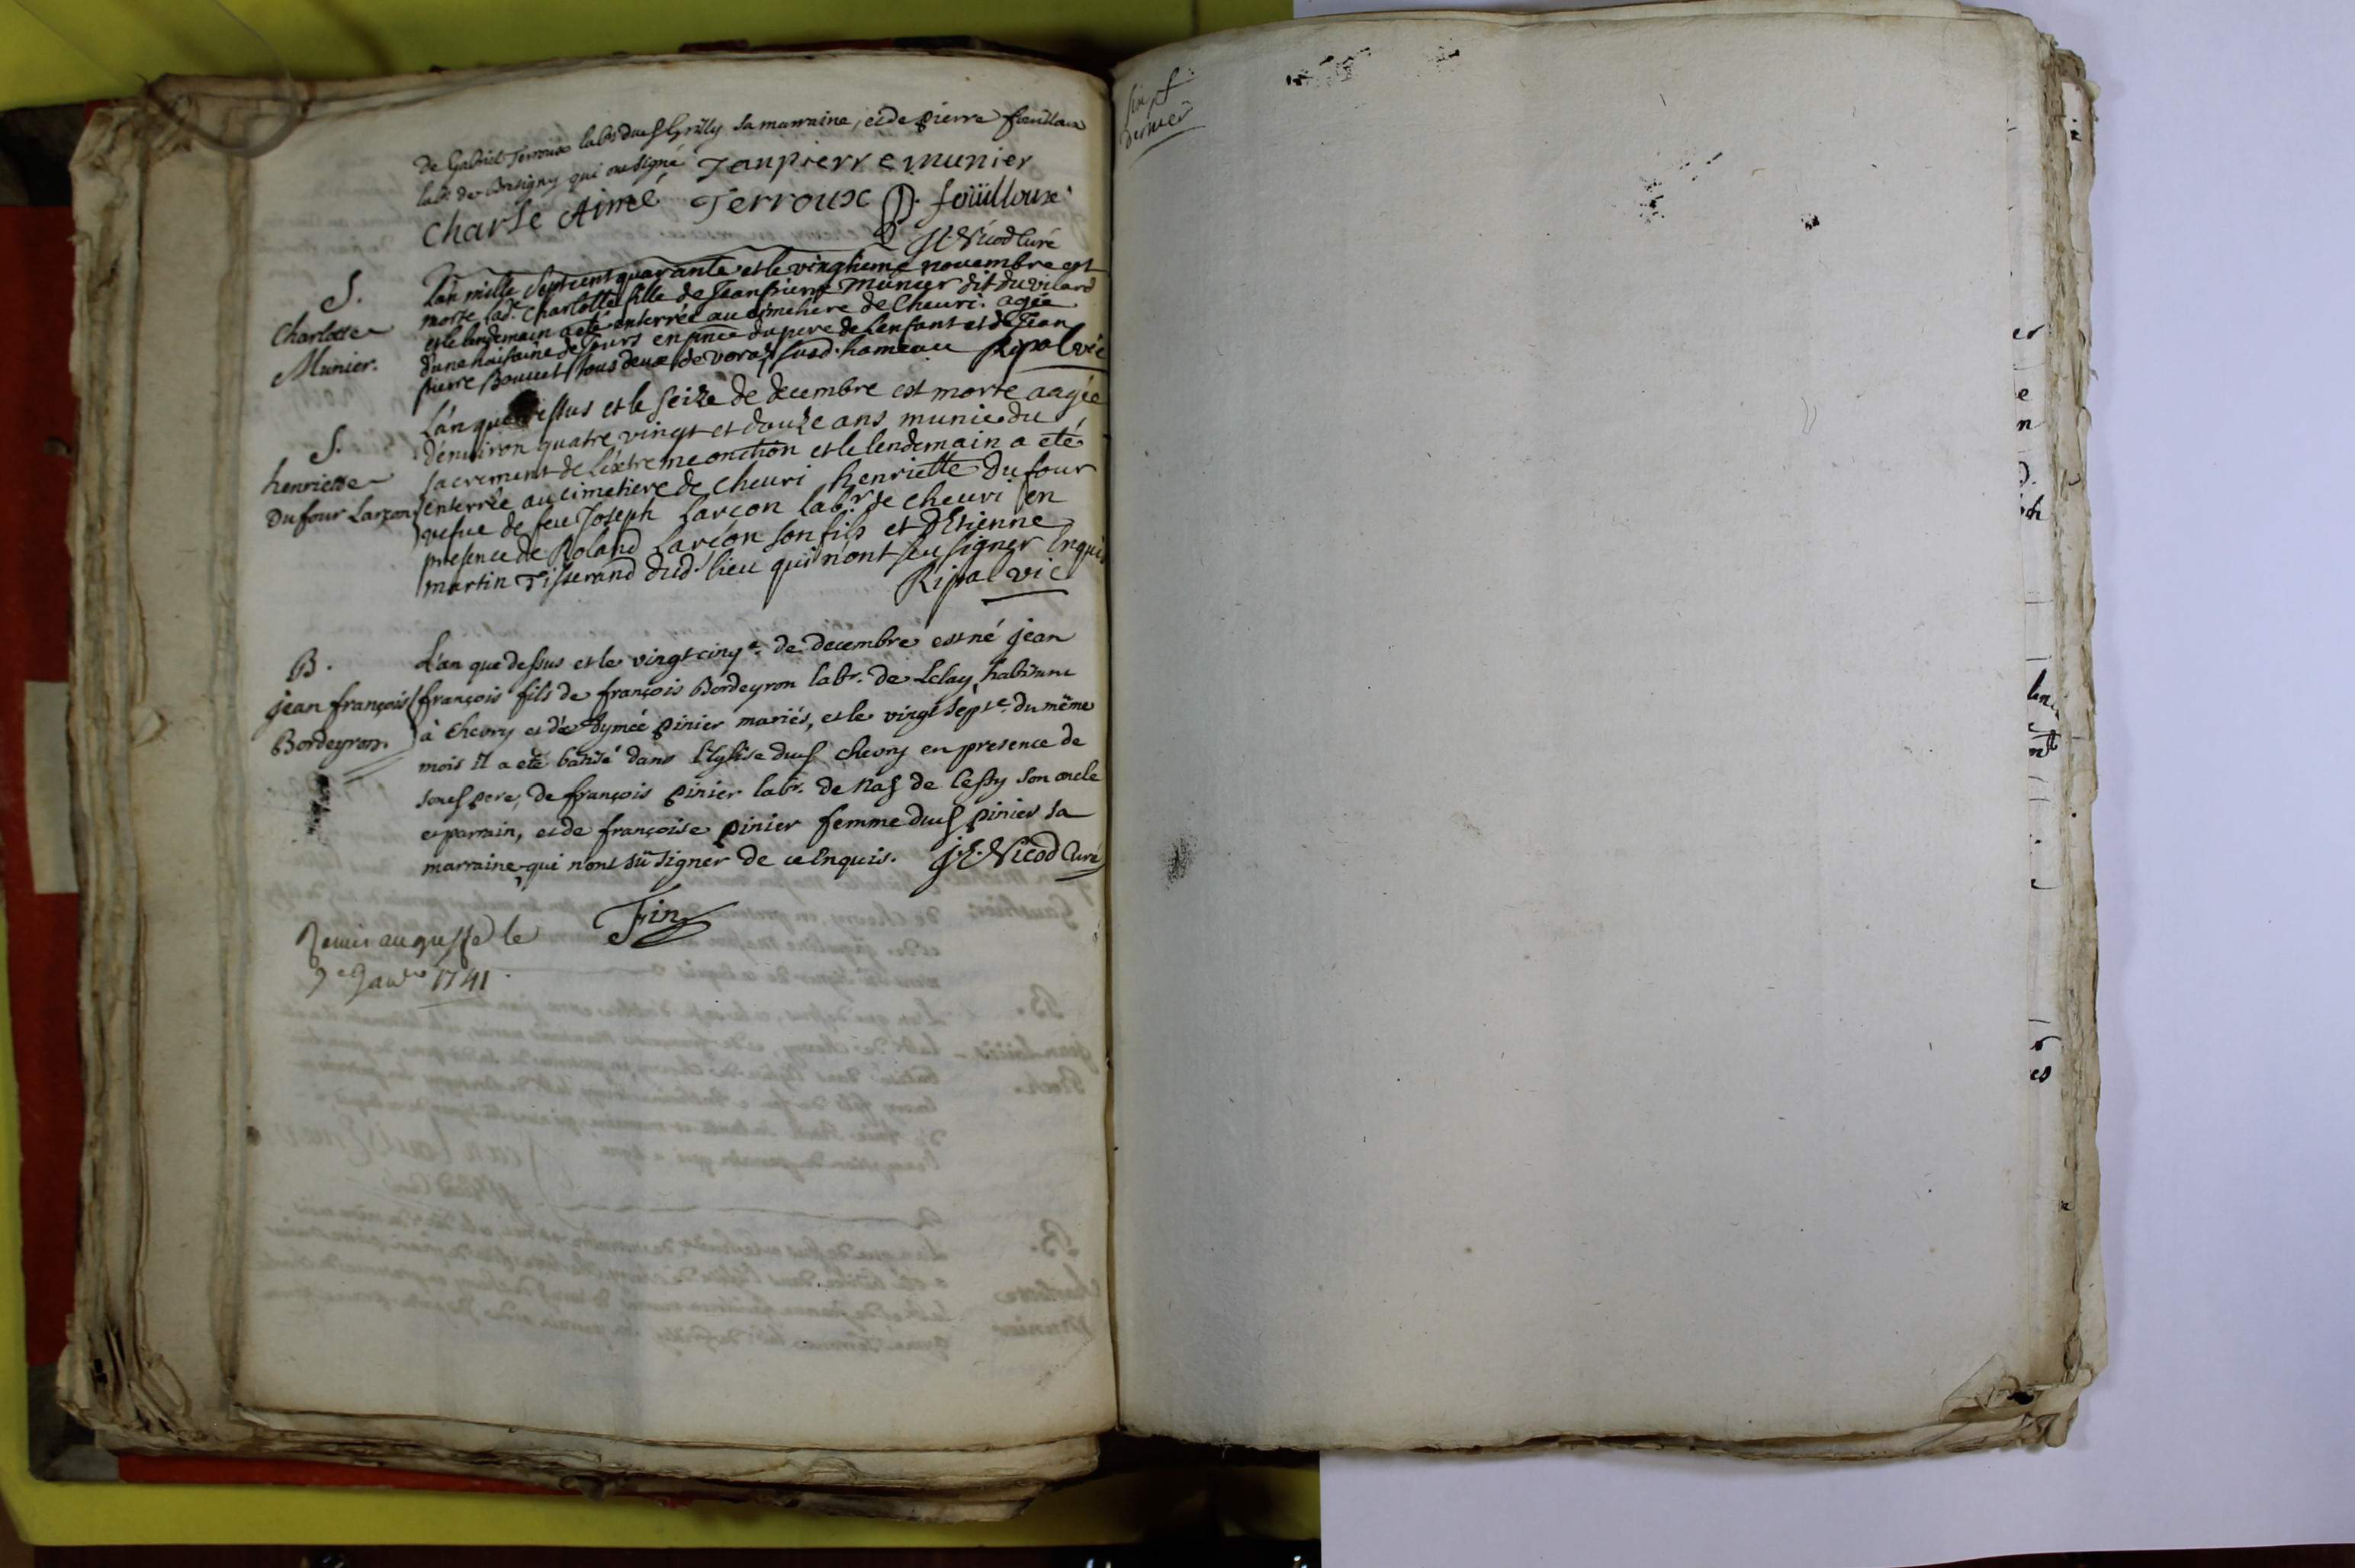 de Gabriel Terroux labr. dud Grilly sa marraine, et de pierre fouilloux
labr. de Brétigny qui ont signé Janpierre munier
charle Aimé Terroux P. foüilloux
J. E. Nicod Curé
S.
Charlotte
Munier.
L'an mille sept cent quarante et le vingtieme novembre est
morte lad. Charlotte fille de Jean pierre Munier dit du vilard
et le lendemain a eté enterrée au cimetiere de Cheuri. agée
d'une huitaine de jours en pnce du pere de L'enfant et de Jean
pierre Bouvet tous deux de Voraz susd. hameau Ripal vic
S.
henriette
Dufour Larçon
L'an que dessus et le seize de decembre est morte aagée
d'environ quatre vingt et douze ans munie du
sacrement de l'extreme onction et le lendemain a eté
enterrée au cimetiere de Cheuri henriette Dufour
vefue de feu Joseph Larçon labr. de cheuri en
presence de Roland Larçon son fils et d'Etienne
martin Tisserand dud. lieu qui n'ont sçu signer Enquis
Ripal vic
B.
jean françois
Bordeyron.
L'an que dessus et le vingt cinqe. de decembre est né jean
françois fils de françois Bordeyron labr. de Lelay, habitant
à chevry et de Aymée pinier mariés, et le vingt septe. du même
mois il a eté batisé dans L'Eglise dud chevry en presence de
sond pere, de françois pinier labr. de Naz de Cessy son oncle
et parrain, et de françoise pinier femme dud pinier sa
marraine, qui n'ont sü signer de ce Enquis. J. E. Nicod Curé
Fin
Remis au greffe le
9e Janvr 1741
six f
dernier